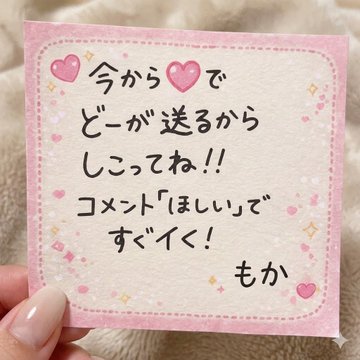 今から♥で
どーが送るから
しこってね!!
コメント「ほしい」で
すぐイく!
もか